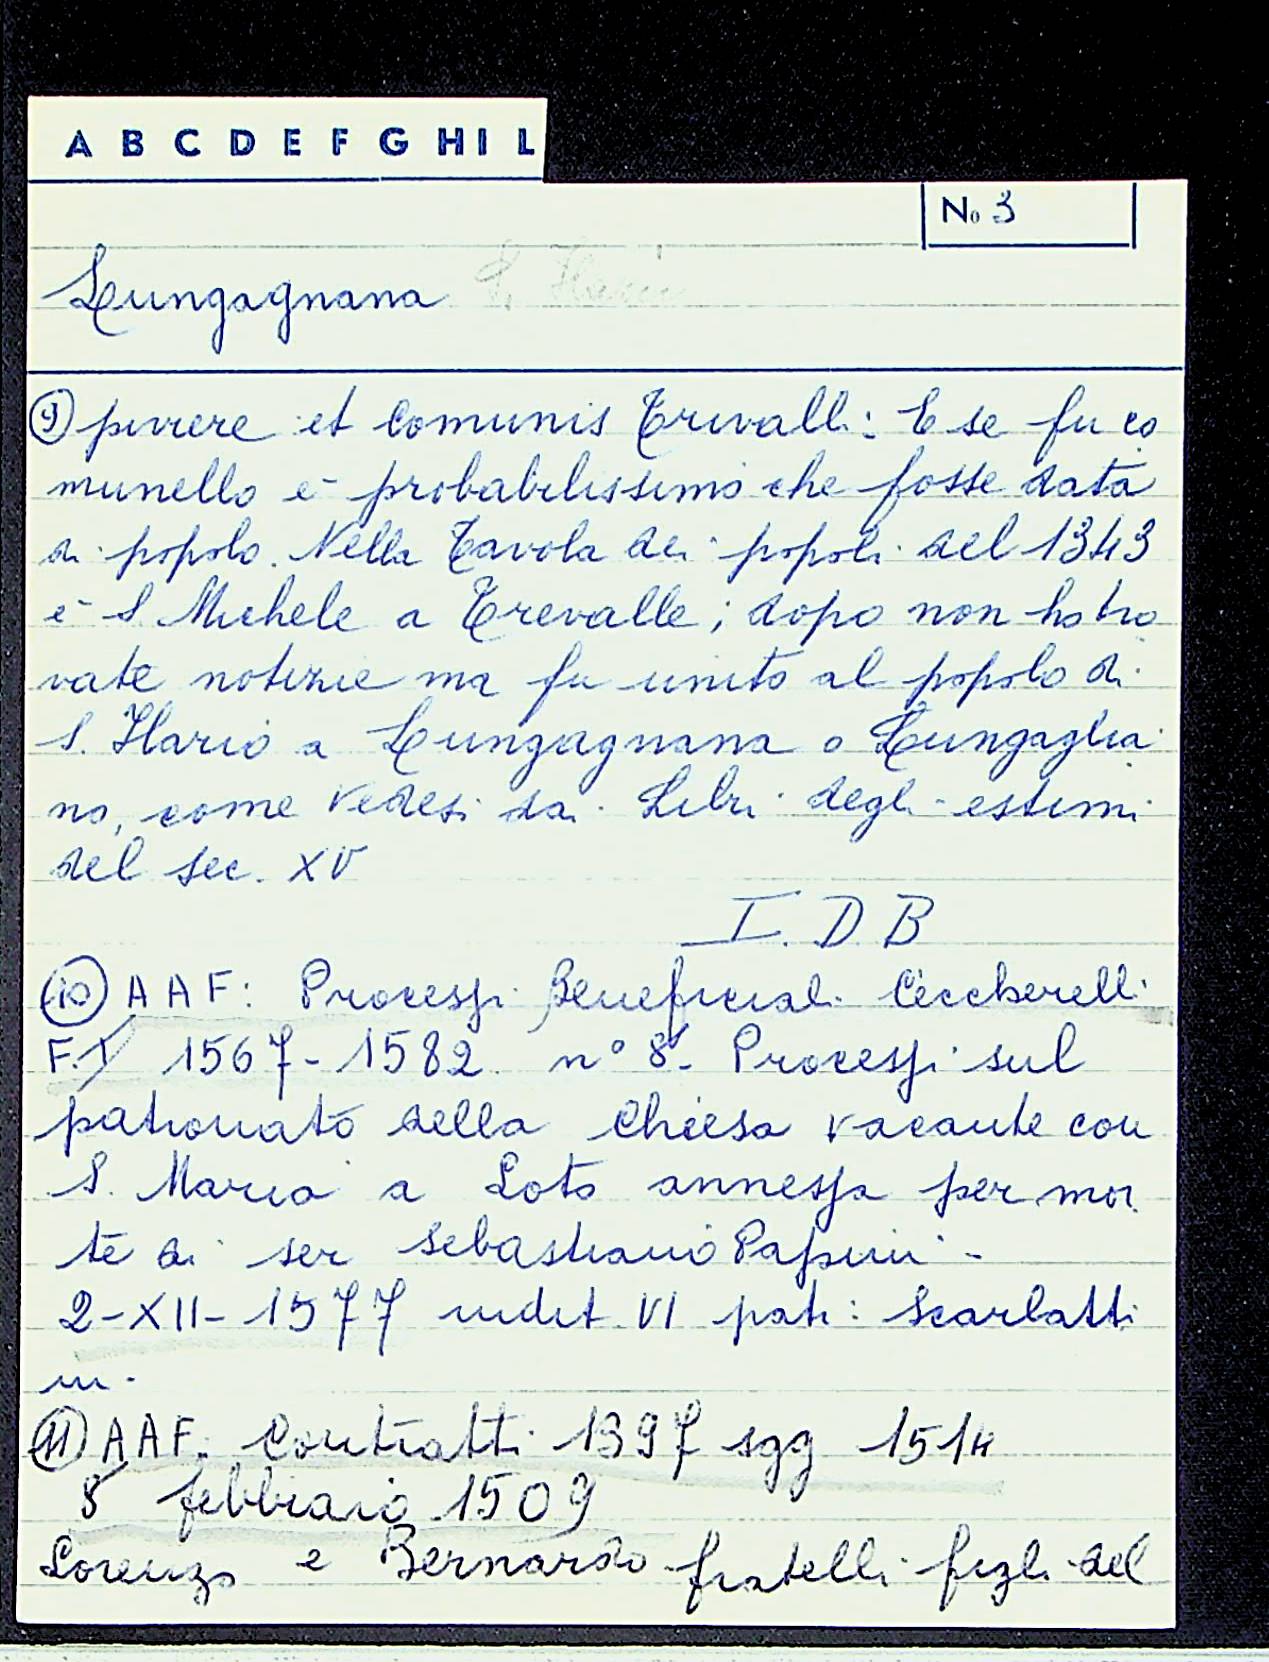 A B C D E F G H I L
No 3
Lungagnana S. Ilario
9) piviere et Comunis Trivalli: E se fu co
munello è probabilissimo che fosse stata
di popolo. Nella Tavola dei popoli del 1343
è S. Michele a Trevalle; dopo non ho tro
vate notizie ma fu unito al popolo di
S. Ilario a Lungagnana o Lungaglia
no, come vedesi dai Libri degli estimi
del sec. XV
I. D B
10) AAF: Processi Beneficiali Ceccherelli
F.I 1567-1582 n° 8. Processi sul
patronato della Chiesa vacante con
S. Maria a Loto annessa per mor
te di ser Sebastiano Papini -
2-XII-1577 indit VI patr: Scarlatti
ni.
11) AAF. Contratti 1397 sgg 1514
8 febbraio 1509
Lorenzo e Bernardo fratelli figli del